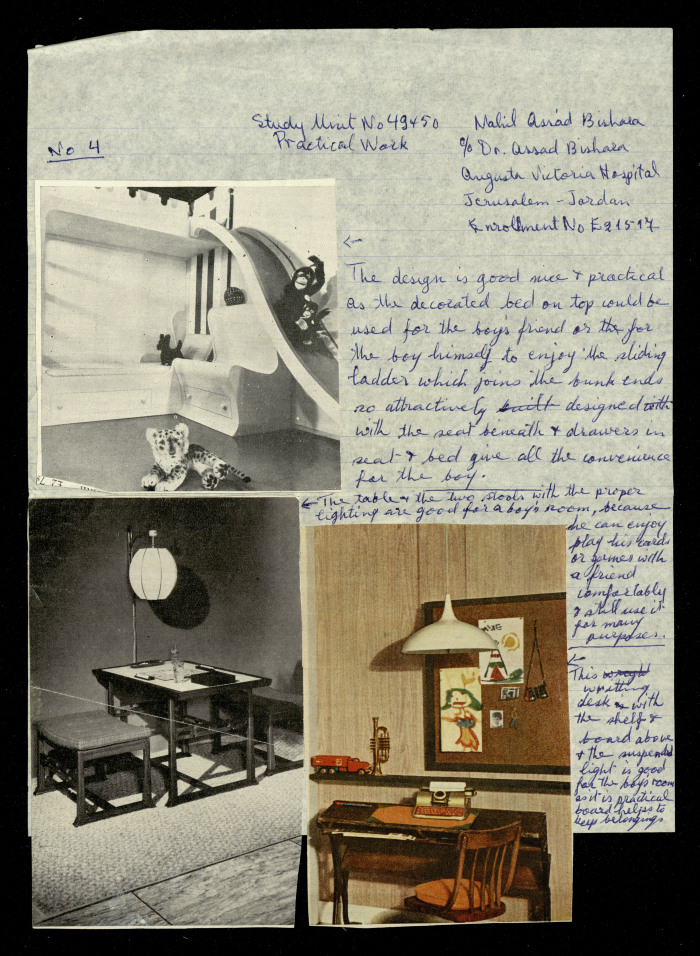 No 4
Study Unit No 49450
Practical Work
Nahil Assad Bishara
c/o Dr. Assad Bishara
Augusta Victoria Hospital
Jerusalem - Jordan
Enrollment No E21517
←
The design is good nice & practical
as the decorated bed on top could be
used for the boy's friend or the for
the boy himself to enjoy the sliding
ladder which joins the bunk ends
so attractively built designed with
with the seat beneath & drawers in
seat & bed give all the convenience
for the boy.
← The table & the two stools with the proper
lighting are good for a boy's room, because
he can enjoy
play his cards
or games with
a friend
comfortably
& still use it
for many
purposes.
←
This
writting
desk is with
the shelf &
board above
& the suspended
light is good
for the boys room
as it is practical
board helps to
keep belongings